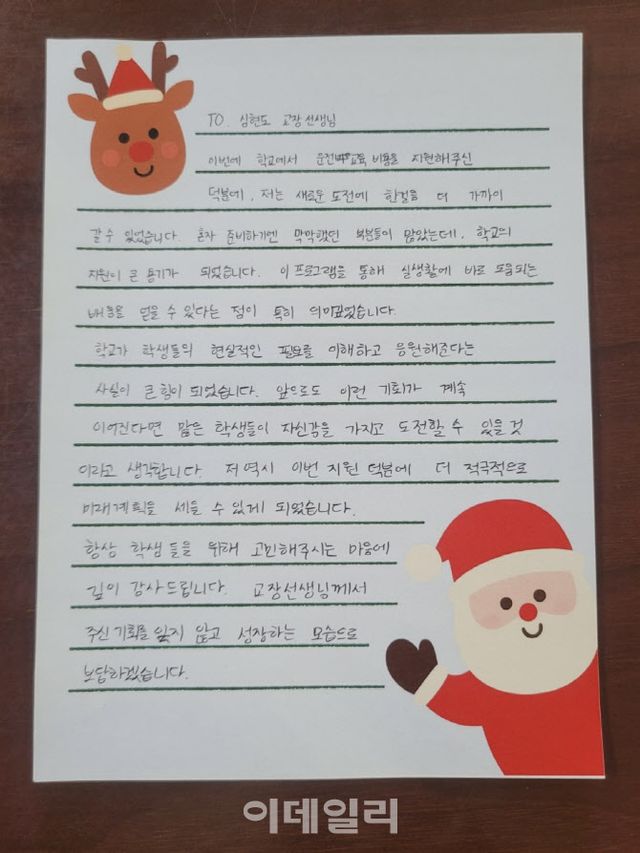 TO. 심현도 교장선생님
이번에 학교에서 운전교육 비용을 지원해주신
덕분에, 저는 새로운 도전에 한걸음 더 가까이
갈 수 있었습니다. 혼자 준비하기엔 막막했던 부분들이 많았는데, 학교의
지원이 큰 용기가 되었습니다. 이 프로그램을 통해 실생활에 바로 도움되는
배움을 얻을 수 있다는 점이 특히 의미있었습니다.
학교가 학생들의 현실적인 필요를 이해하고 응원해준다는
사실이 큰 힘이 되었습니다. 앞으로도 이런 기회가 계속
이어진다면 많은 학생들이 자신감을 가지고 도전할 수 있을 것
이라고 생각합니다. 저 역시 이번 지원 덕분에 더 적극적으로
미래계획을 세울 수 있게 되었습니다.
항상 학생들을 위해 고민해주시는 마음에
깊이 감사드립니다. 교장선생님께서
주신 기회를 잊지 않고 성장하는 모습으로
보답하겠습니다.
이데일리